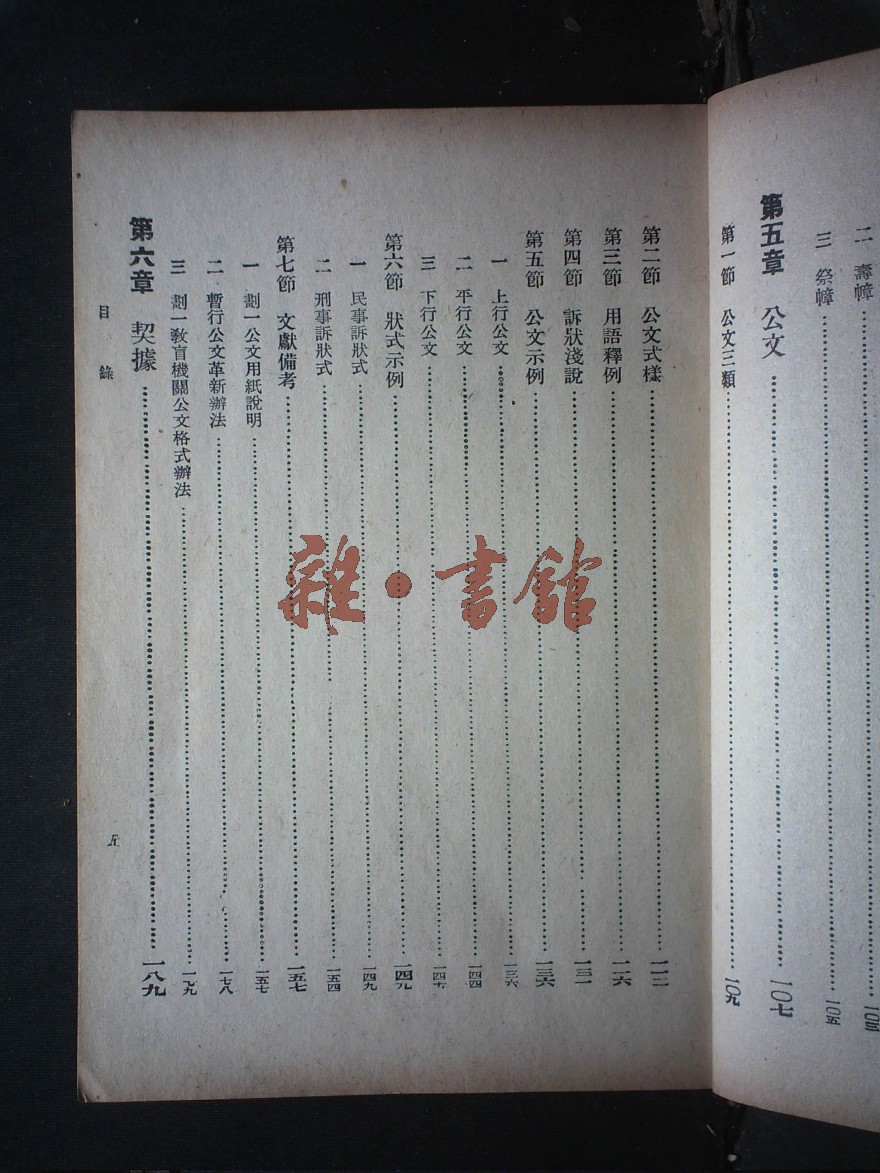 二 壽幛……一〇三
三 祭幛……一〇五
第五章 公文……一〇七
第一節 公文三類……一〇九
第二節 公文式樣……一一二
第三節 用語釋例……一一六
第四節 訴狀淺說……一三一
第五節 公文示例……一三六
一 上行公文……一三六
二 平行公文……一四四
三 下行公文……一四七
第六節 狀式示例……一四九
一 民事訴狀式……一四九
二 刑事訴狀式……一五四
第七節 文獻備考……一五七
一 劃一公文用紙說明……一五七
二 暫行公文革新辦法……一七八
三 劃一教育機關公文格式辦法……一七九
第六章 契據……一八九
目錄
五
雜·書館